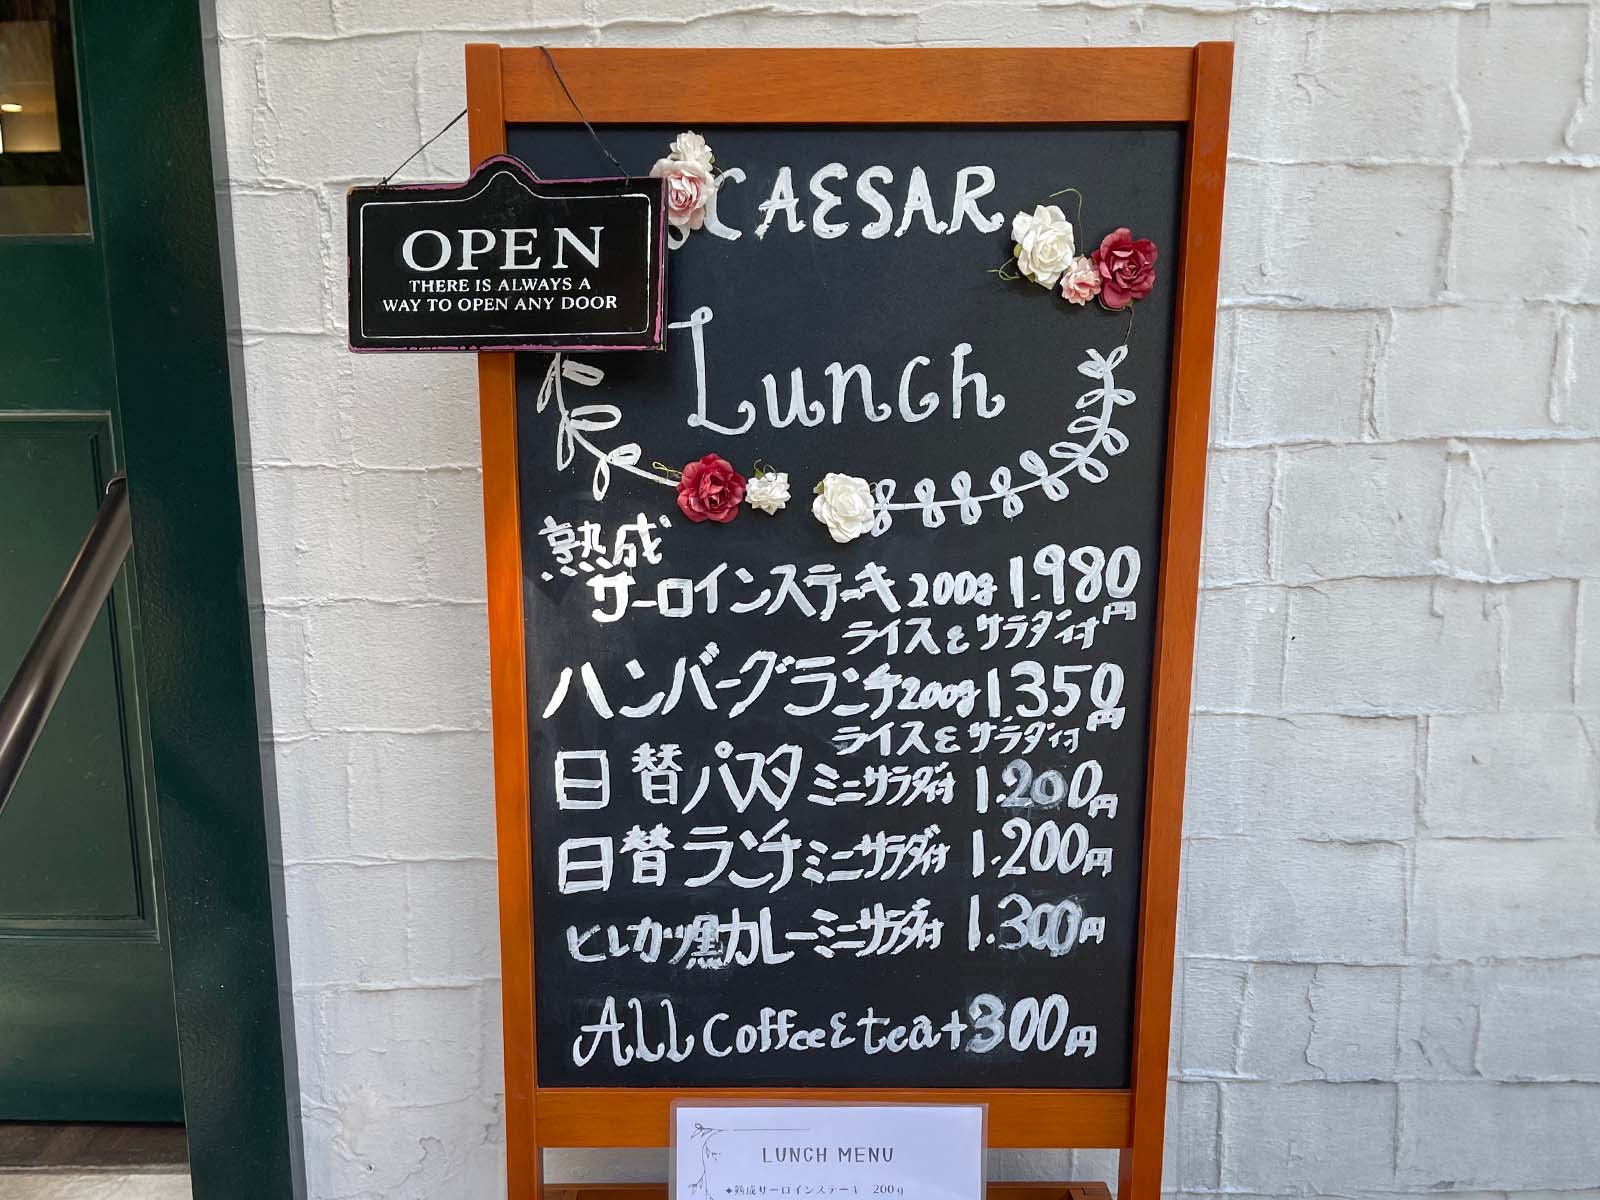 OPEN
THERE IS ALWAYS A
WAY TO OPEN ANY DOOR
CAESAR
Lunch
熟成
サーロインステーキ 200g 1.980円
ライス&サラダ付
ハンバーグランチ 200g 1350円
ライス&サラダ付
日替パスタ ミニサラダ付 1.200円
日替ランチ ミニサラダ付 1.200円
ヒレカツ黒カレー ミニサラダ付 1.300円
All coffee & tea +300円
LUNCH MENU
✦熟成サーロインステーキ 200g